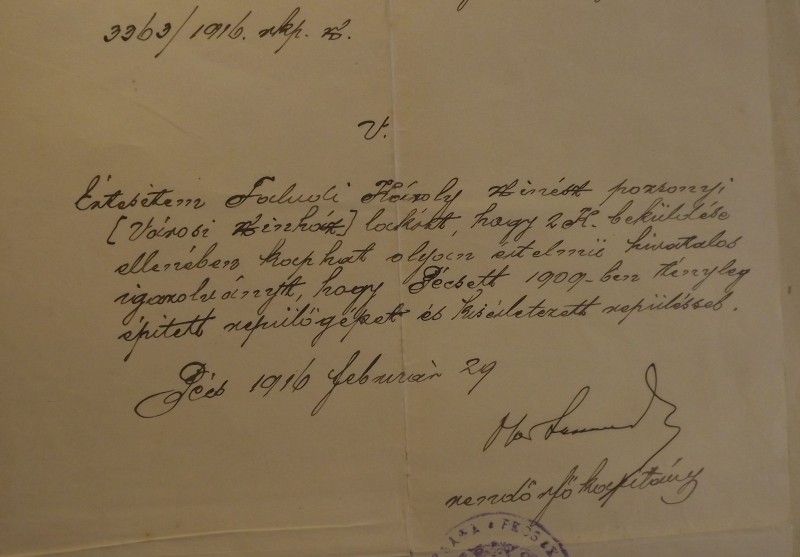 3363/1916. rkp. sz.
V.
Értesitem Faludi Károly szinész pozsonyi
[Városi szinház] lakóst, hogy 2 K. beküldése
ellenében kaphat olyan értelmü hivatalos
igazolványt, hogy Pécsett 1909-ben tényleg
épitett repülőgépet és kisérletezett repüléssel.
Pécs 1916 február 29
rendőrfőkapitány